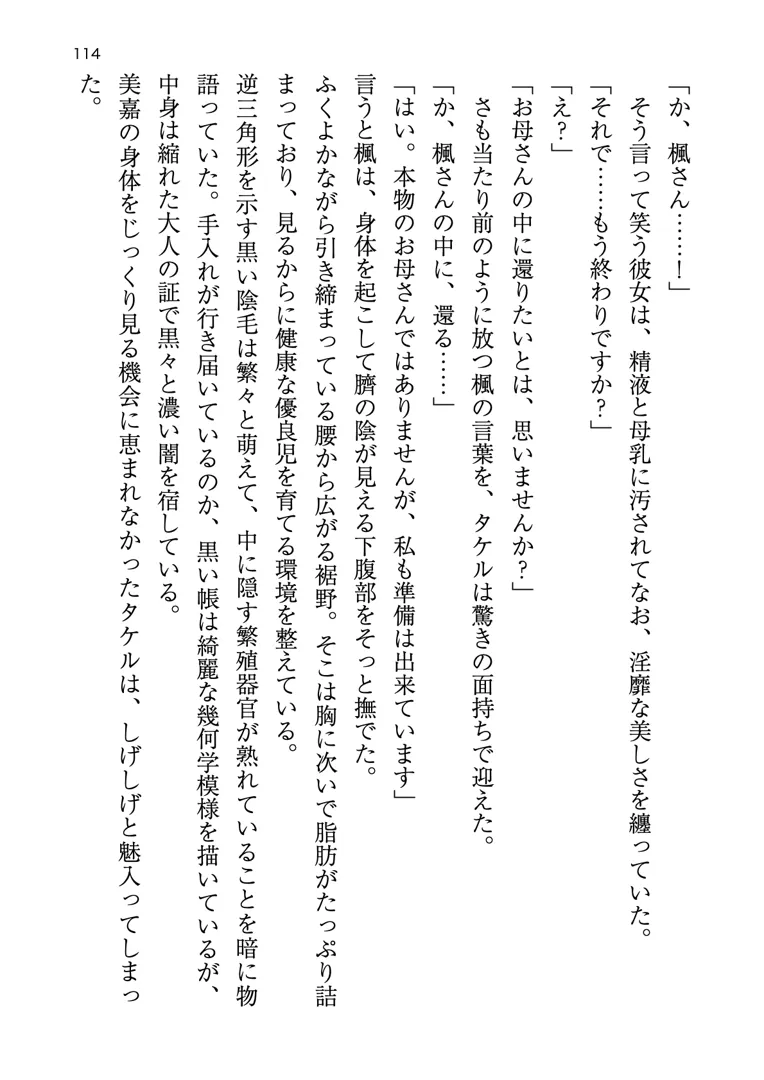 114
「か、楓さん……！」
そう言って笑う彼女は、精液と母乳に汚されてなお、淫靡な美しさを纏っていた。
「それで……もう終わりですか？」
「え？」
「お母さんの中に還りたいとは、思いませんか？」
さも当たり前のように放つ楓の言葉を、タケルは驚きの面持ちで迎えた。
「か、楓さんの中に、還る……」
「はい。本物のお母さんではありませんが、私も準備は出来ています」
言うと楓は、身体を起こして臍の陰が見える下腹部をそっと撫でた。
ふくよかながら引き締まっている腰から広がる裾野。そこは胸に次いで脂肪がたっぷり詰
まっており、見るからに健康な優良児を育てる環境を整えている。
逆三角形を示す黒い陰毛は繁々と萌えて、中に隠す繁殖器官が熟れていることを暗に物
語っていた。手入れが行き届いているのか、黒い帳は綺麗な幾何学模様を描いているが、
中身は縮れた大人の証で黒々と濃い闇を宿している。
美嘉の身体をじっくり見る機会に恵まれなかったタケルは、しげしげと魅入ってしまっ
た。